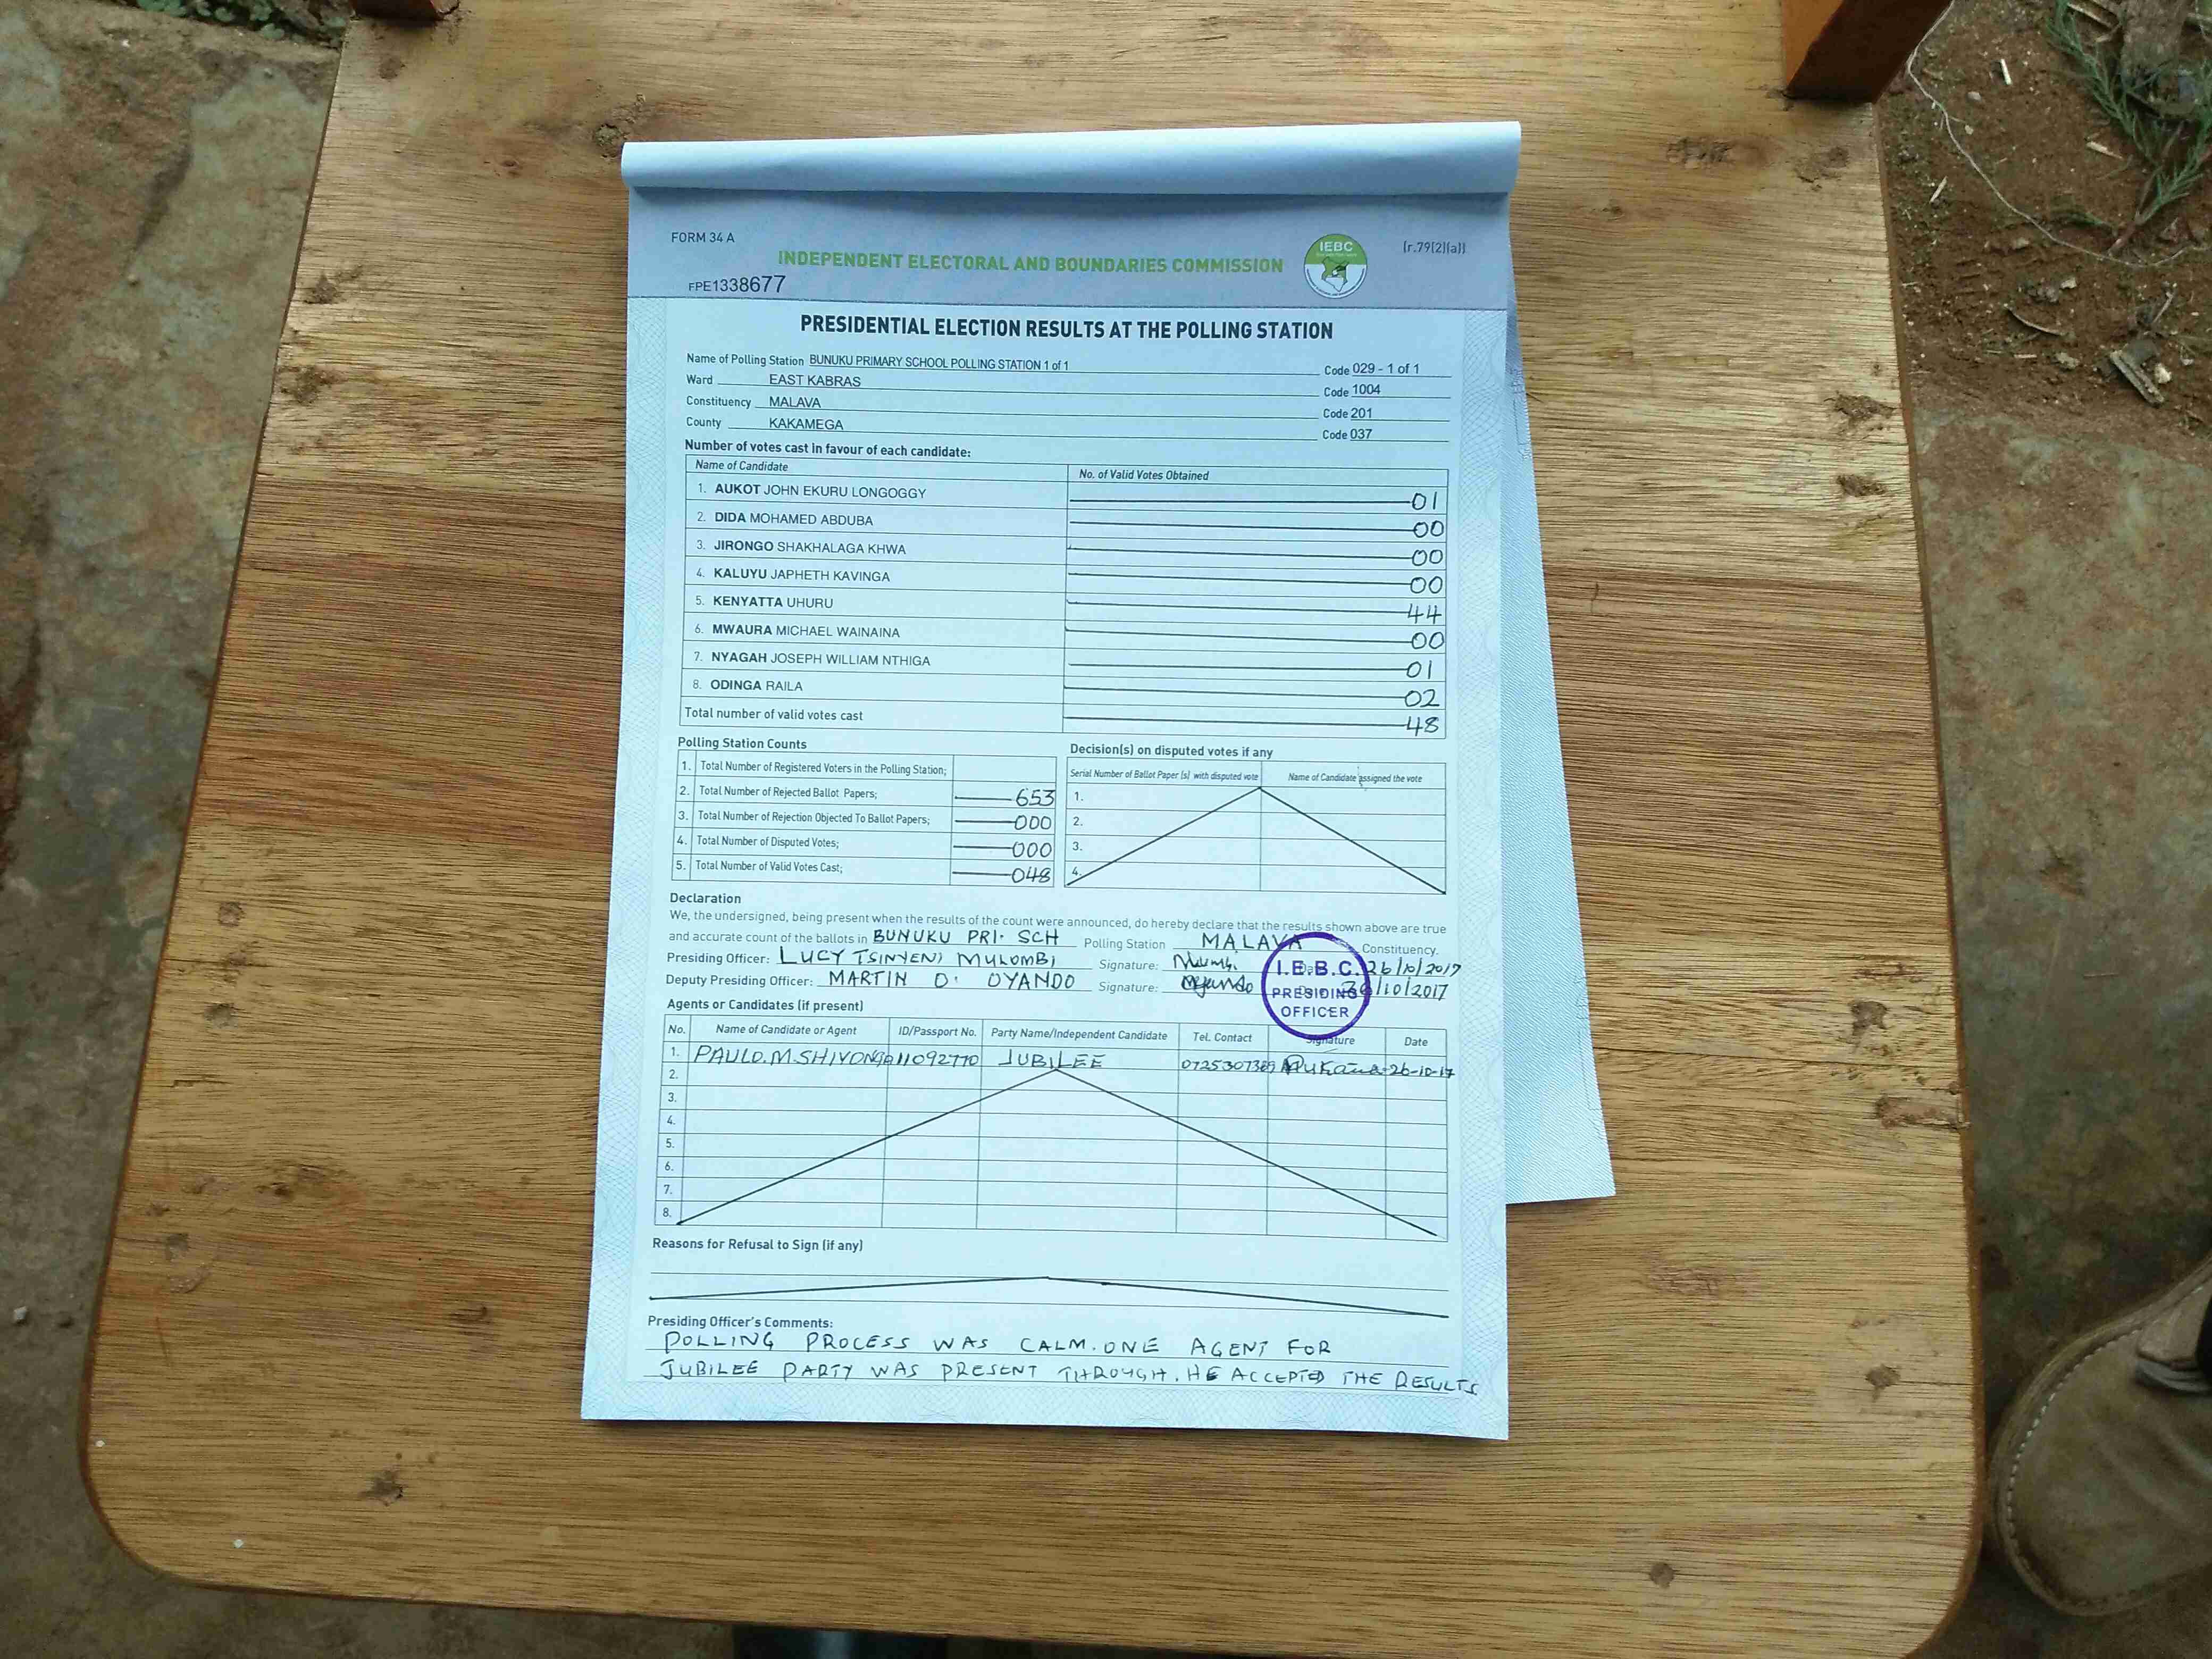 FORM 34 A
IEBC
(r.79(2)(a))
INDEPENDENT ELECTORAL AND BOUNDARIES COMMISSION
FPE1338677
PRESIDENTIAL ELECTION RESULTS AT THE POLLING STATION
Name of Polling Station BUNUKU PRIMARY SCHOOL POLLING STATION 1 of 1 Code 029 - 1 of 1
Ward EAST KABRAS Code 1004
Constituency MALAVA Code 201
County KAKAMEGA Code 037
Number of votes cast in favour of each candidate:
Name of Candidate No. of Valid Votes Obtained
1. AUKOT JOHN EKURU LONGOGGY 01
2. DIDA MOHAMED ABDUBA 00
3. JIRONGO SHAKHALAGA KHWA 00
4. KALUYU JAPHETH KAVINGA 00
5. KENYATTA UHURU 44
6. MWAURA MICHAEL WAINAINA 00
7. NYAGAH JOSEPH WILLIAM NTHIGA 01
8. ODINGA RAILA 02
Total number of valid votes cast 48
Polling Station Counts
1. Total Number of Registered Voters in the Polling Station;
2. Total Number of Rejected Ballot Papers; 653
3. Total Number of Rejection Objected To Ballot Papers; 000
4. Total Number of Disputed Votes; 000
5. Total Number of Valid Votes Cast; 048
Decision(s) on disputed votes if any
Serial Number of Ballot Paper (s) with disputed vote Name of Candidate assigned the vote
1.
2.
3.
4.
Declaration
We, the undersigned, being present when the results of the count were announced, do hereby declare that the results shown above are true
and accurate count of the ballots in BUNUKU PRI. SCH Polling Station MALAVA Constituency.
Presiding Officer: LUCY TSINYENI MULOMBI Signature: 26/10/2017
Deputy Presiding Officer: MARTIN O. OYANDO Signature: 26/10/2017
I.E.B.C.
PRESIDING
OFFICER
Agents or Candidates (if present)
No. Name of Candidate or Agent ID/Passport No. Party Name/Independent Candidate Tel. Contact Signature Date
1. PAULO.M. 11092770 JUBILEE 26-10-17
2.
3.
4.
5.
6.
7.
8.
Reasons for Refusal to Sign (if any)
Presiding Officer's Comments:
POLLING PROCESS WAS CALM. ONE AGENT FOR
JUBILEE PARTY WAS PRESENT THROUGH. HE ACCEPTED THE RESULTS